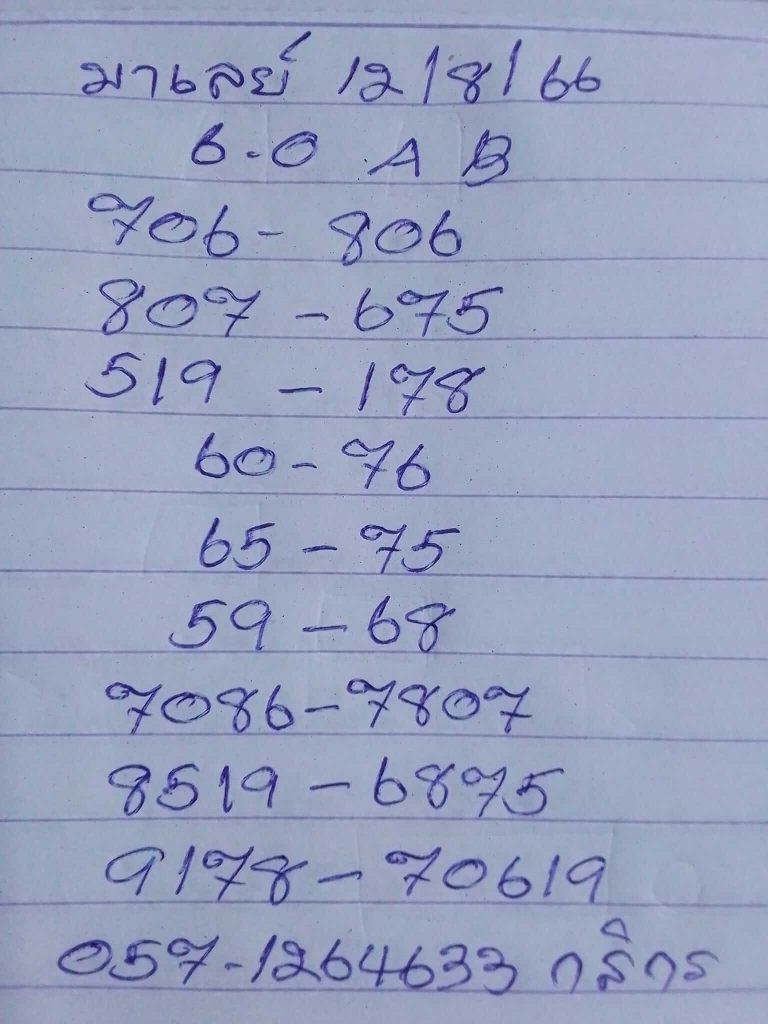 มาเลย์ 12/8/66
6-0 A B
706- 806
807 - 675
519 - 178
60- 76
65 - 75
59 - 68
7086-7807
8519 - 6875
9178 - 70619
057-1264633 กสิกร